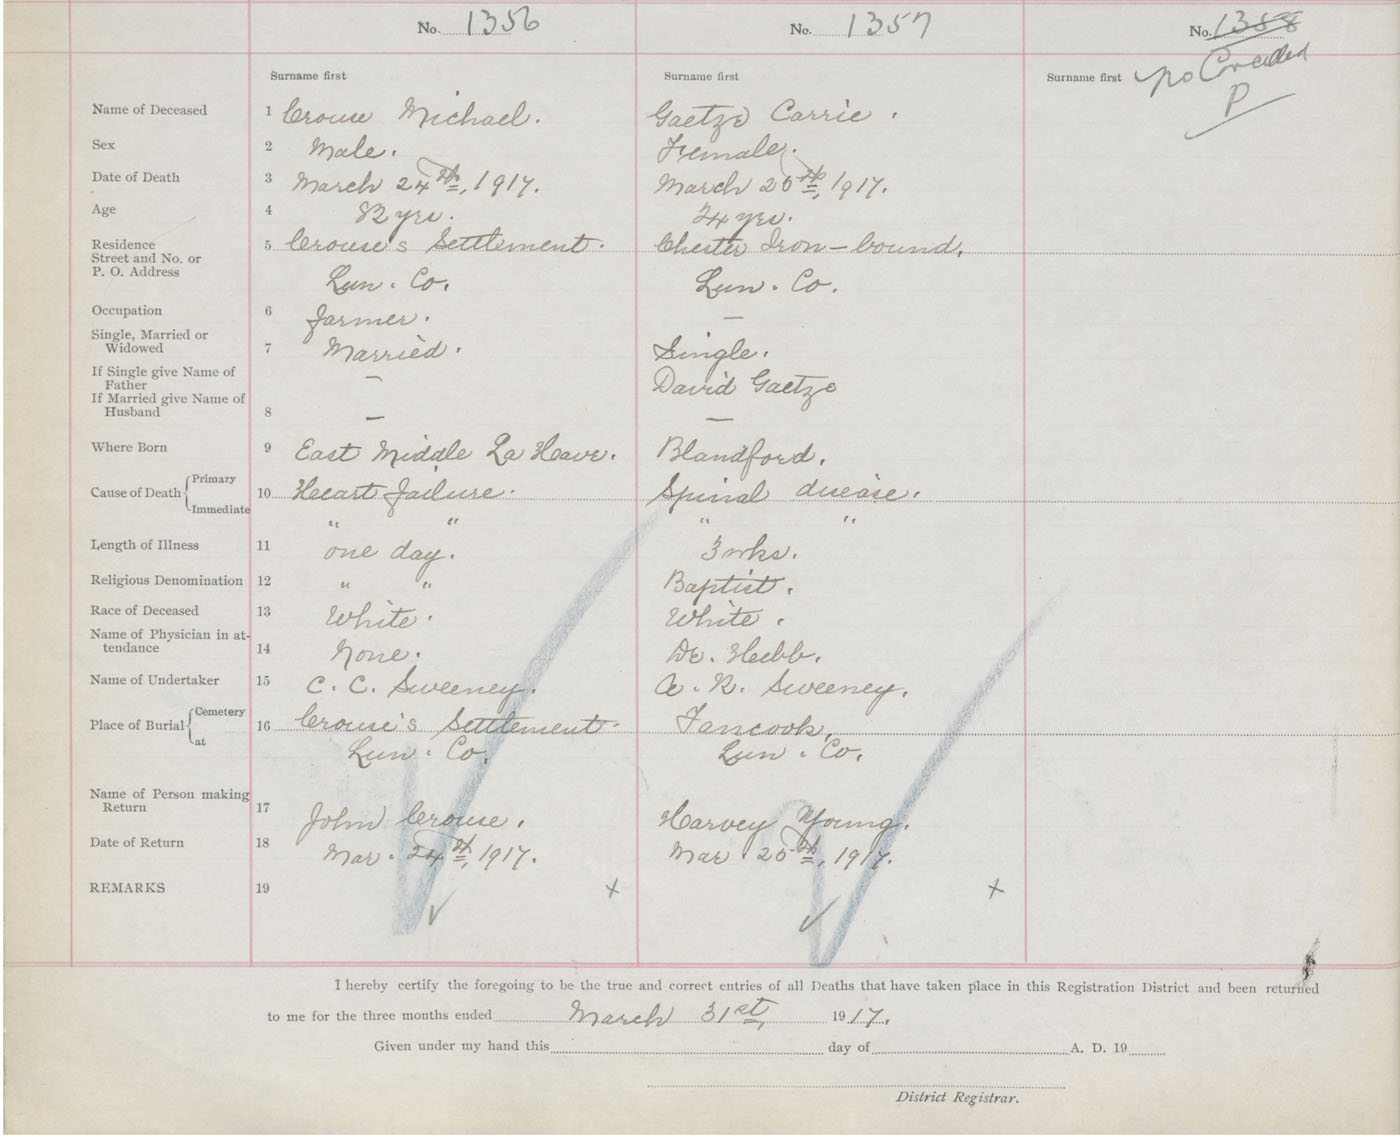 No. 1356 No. 1357 No. 1358
Surname first Surname first Surname first no
P
Name of Deceased 1 Crouse Michael. Gaetze Carrie.
Sex 2 Male. Female.
Date of Death 3 March 24th, 1917. March 25th, 1917.
Age 4 82 yrs. 24 yrs.
Residence
Street and No. or
P. O. Address 5 Crouse's Settlement. Chester Iron-bound.
Lun. Co. Lun. Co.
Occupation 6 farmer. —
Single, Married or
Widowed 7 Married. Single.
If Single give Name of
Father — David Gaetze
If Married give Name of
Husband 8 — —
Where Born 9 East Middle La Have. Blandford.
Cause of Death { Primary
Immediate 10 Heart failure. Spinal disease.
" " " "
Length of Illness 11 one day. 3 wks.
Religious Denomination 12 " " Baptist.
Race of Deceased 13 White. White.
Name of Physician in at-
tendance 14 None. Dr. Hebb.
Name of Undertaker 15 C. C. Sweeney. A. R. Sweeney.
Place of Burial { Cemetery
at 16 Crouse's Settlement. Tancook,
Lun. Co. Lun. Co.
Name of Person making
Return 17 John Crouse. Harvey Young.
Date of Return 18 Mar. 24th, 1917. Mar. 25th, 1917.
REMARKS 19 x x
I hereby certify the foregoing to be the true and correct entries of all Deaths that have taken place in this Registration District and been returned
to me for the three months ended March 31st, 1917.
Given under my hand this day of A. D. 19
District Registrar.